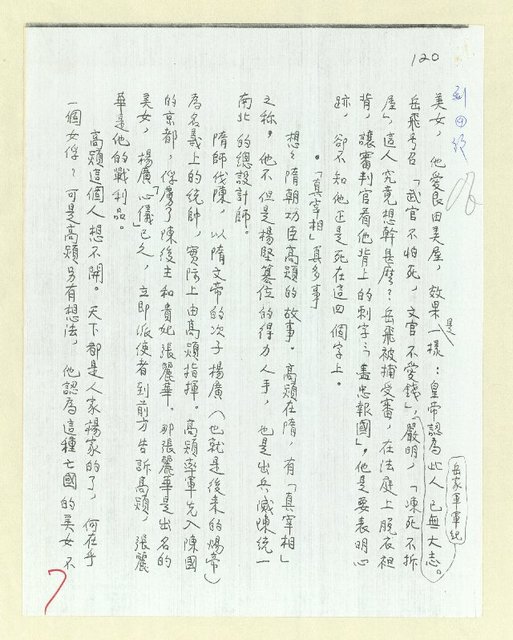 120
到四行
美女，他愛良田美屋，效果是一樣：皇帝認為此人已無大志。
岳飛號召「武官不怕死，文官不愛錢」，岳家軍軍紀嚴明，「凍死不拆
屋」，這人究竟想幹甚麼？岳飛被捕受審，在法庭上脫衣袒
背，讓審判官看他背上的刺字：「盡忠報國」。他是要表明心
跡，卻不知他正是死在這四個字上。
。「真宰相」真多事
想想隋朝功臣高熲的故事。高熲在隋，有「真宰相」
之稱，他不但是楊堅篡位的得力人手，也是出兵滅陳統一
南北的總設計師。
隋師伐陳，以隋文帝的次子楊廣（也就是後來的煬帝）
為名義上的統帥，實際上由高熲指揮。高熲率軍先入陳國
的京都，俘虜了陳後主和貴妃張麗華，那張麗華是出名的
美女，楊廣「心儀」已久，立即派使者到前方告訴高熲，張麗
華是他的戰利品。
高熲這個人想不開。天下都是人家楊家的了，何在乎
一個女俘？可是高熲另有想法，他認為這種亡國的美女不